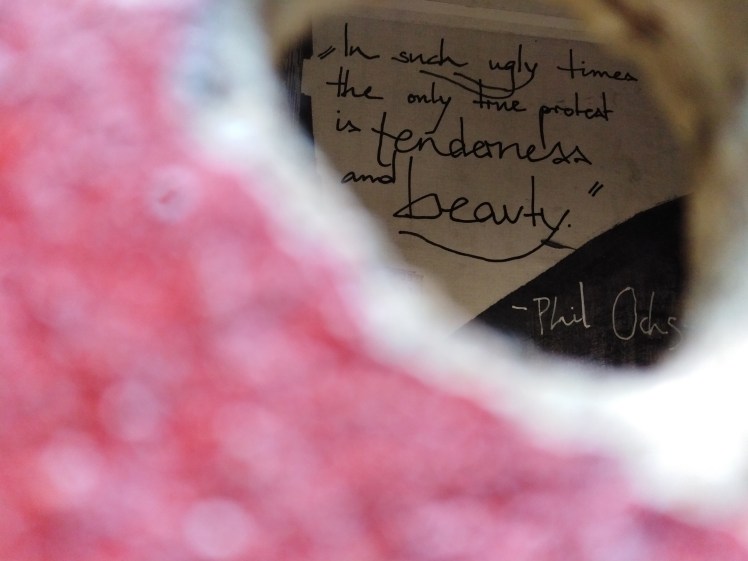 "In such ugly times
the only true protest
is tenderness
and beauty."
- Phil Ochs